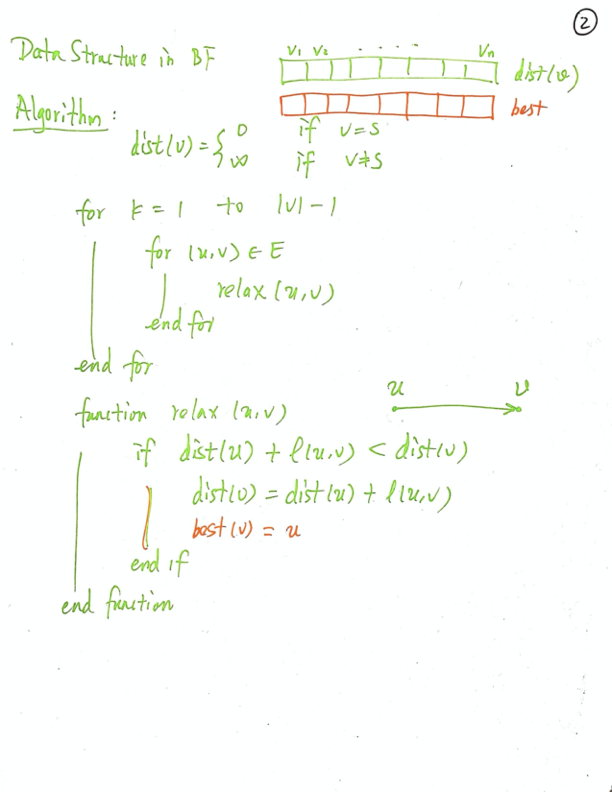 ②
Data Structure in BF
V₁ V₂ . . . . Vn
dist(v)
best
Algorithm :
dist(v) = { 0 if v = s
∞ if v ≠ s
for k = 1 to |V| - 1
for (u,v) ∈ E
relax (u,v)
end for
end for
function relax (u,v)
u v
if dist(u) + l(u,v) < dist(v)
dist(v) = dist(u) + l(u,v)
best(v) = u
end if
end function